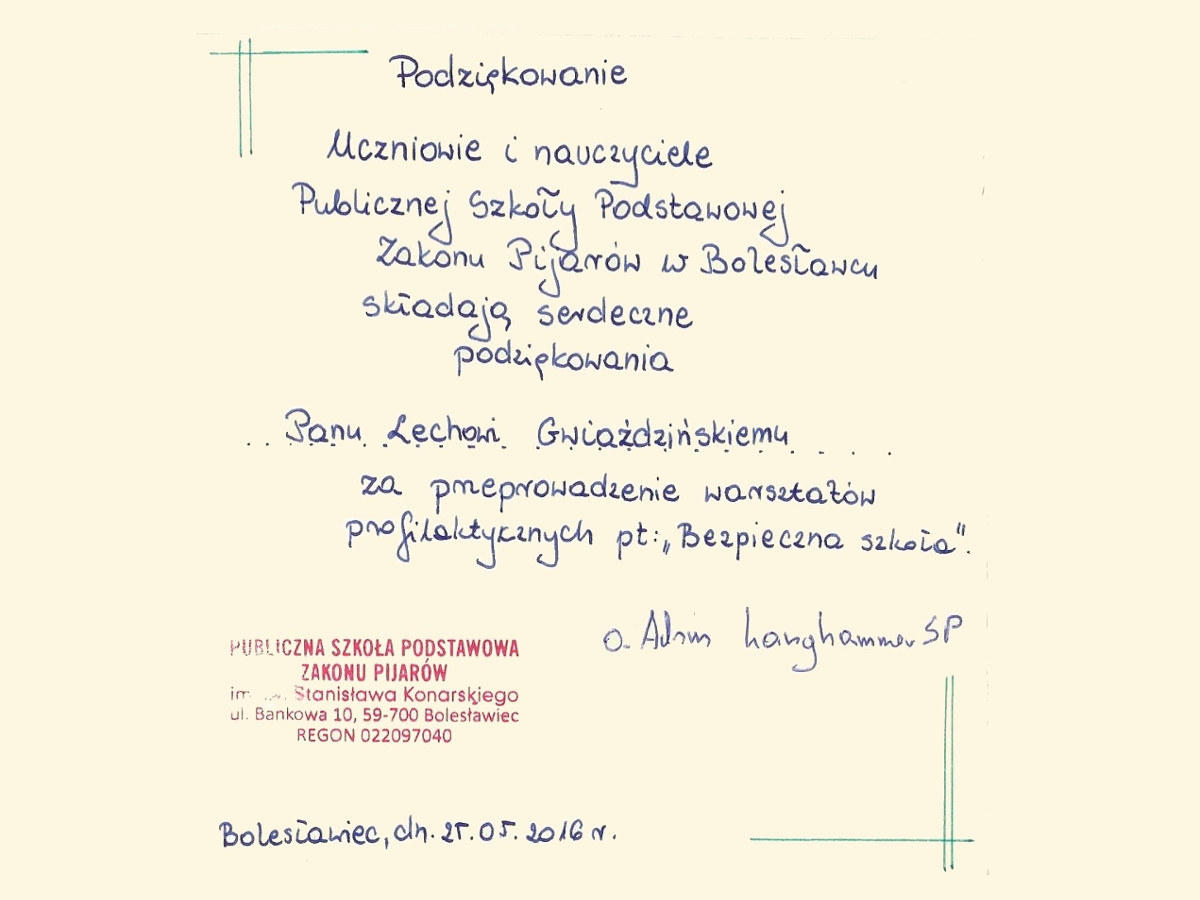 Podziękowanie
Uczniowie i nauczyciele
Publicznej Szkoły Podstawowej
Zakonu Pijarów w Bolesławcu
składają serdeczne
podziękowania
. . Panu Lechowi Gwiaździńskiemu . . . .
za przeprowadzenie warsztatów
profilaktycznych pt: „Bezpieczna szkoła".
o. Adam Langhammer SP
PUBLICZNA SZKOŁA PODSTAWOWA
ZAKONU PIJARÓW
im. Stanisława Konarskiego
ul. Bankowa 10, 59-700 Bolesławiec
REGON 022097040
Bolesławiec, dn. 25.05.2016 r.